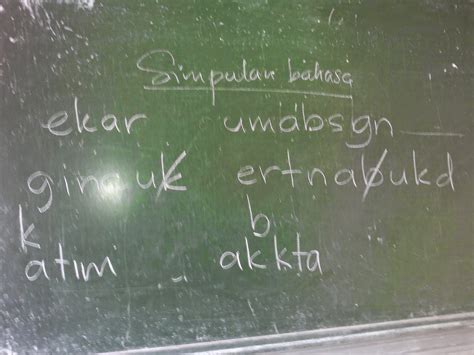 Simpulan bahasa
ekar umabsgn
ginauk ertnabukd
k b
atimi akkta